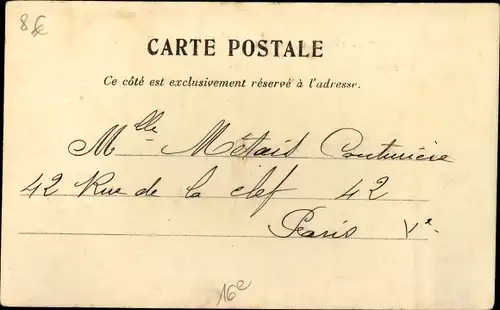 8€
CARTE POSTALE
Ce côté est exclusivement réservé à l'adresse.
Mlle Métais Couturière
42 Rue de la clef 42
Paris Ve
16e